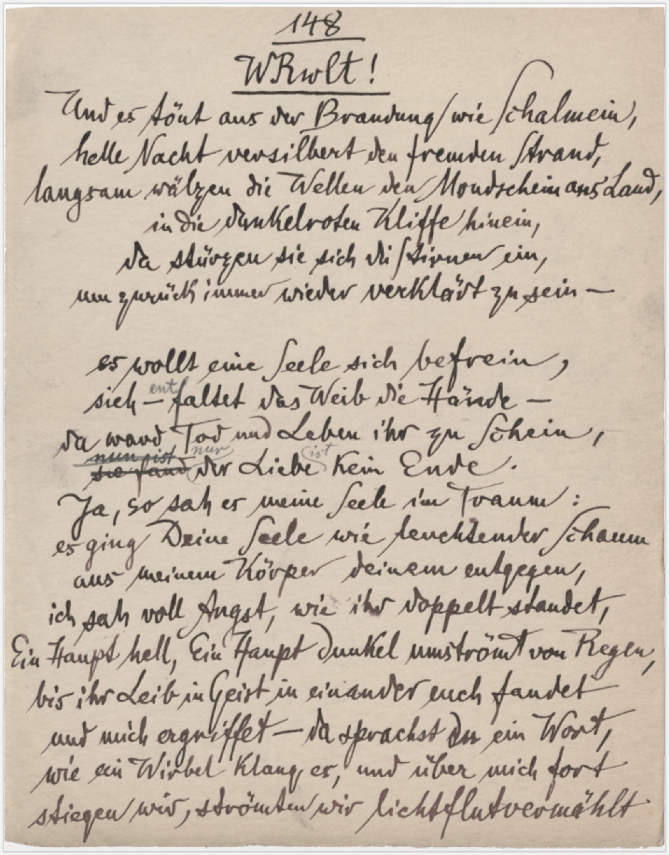 148
WRwlt!
Und es tönt aus der Brandung wie Schalmein,
helle Nacht versilbert den fremden Strand,
langsam wälzen die Wellen den Mondschein ans Land,
in die dunkelroten Kliffe hinein,
da stürzen sie sich die Stirnen ein,
um zurück immer wieder verklärt zu sein —
es wollt eine Seele sich befrein,
ent
sich — faltet das Weib die Hände —
da ward Tod und Leben ihr zu Schein,
nun ist nur ist
sie fand der Liebe kein Ende.
Ja, so sah es meine Seele im Traum:
es ging Deine Seele wie leuchtender Schaum
aus meinem Körper deinem entgegen,
ich sah voll Angst, wie ihr doppelt standet,
Ein Haupt hell, Ein Haupt dunkel umströmt von Regen,
bis ihr Leib in Geist in einander euch fandet
und mich ergriffet — da sprachst du ein Wort,
wie ein Wirbel Klang es, und über mich fort
stiegen wir, strömten wir lichtflutvermählt